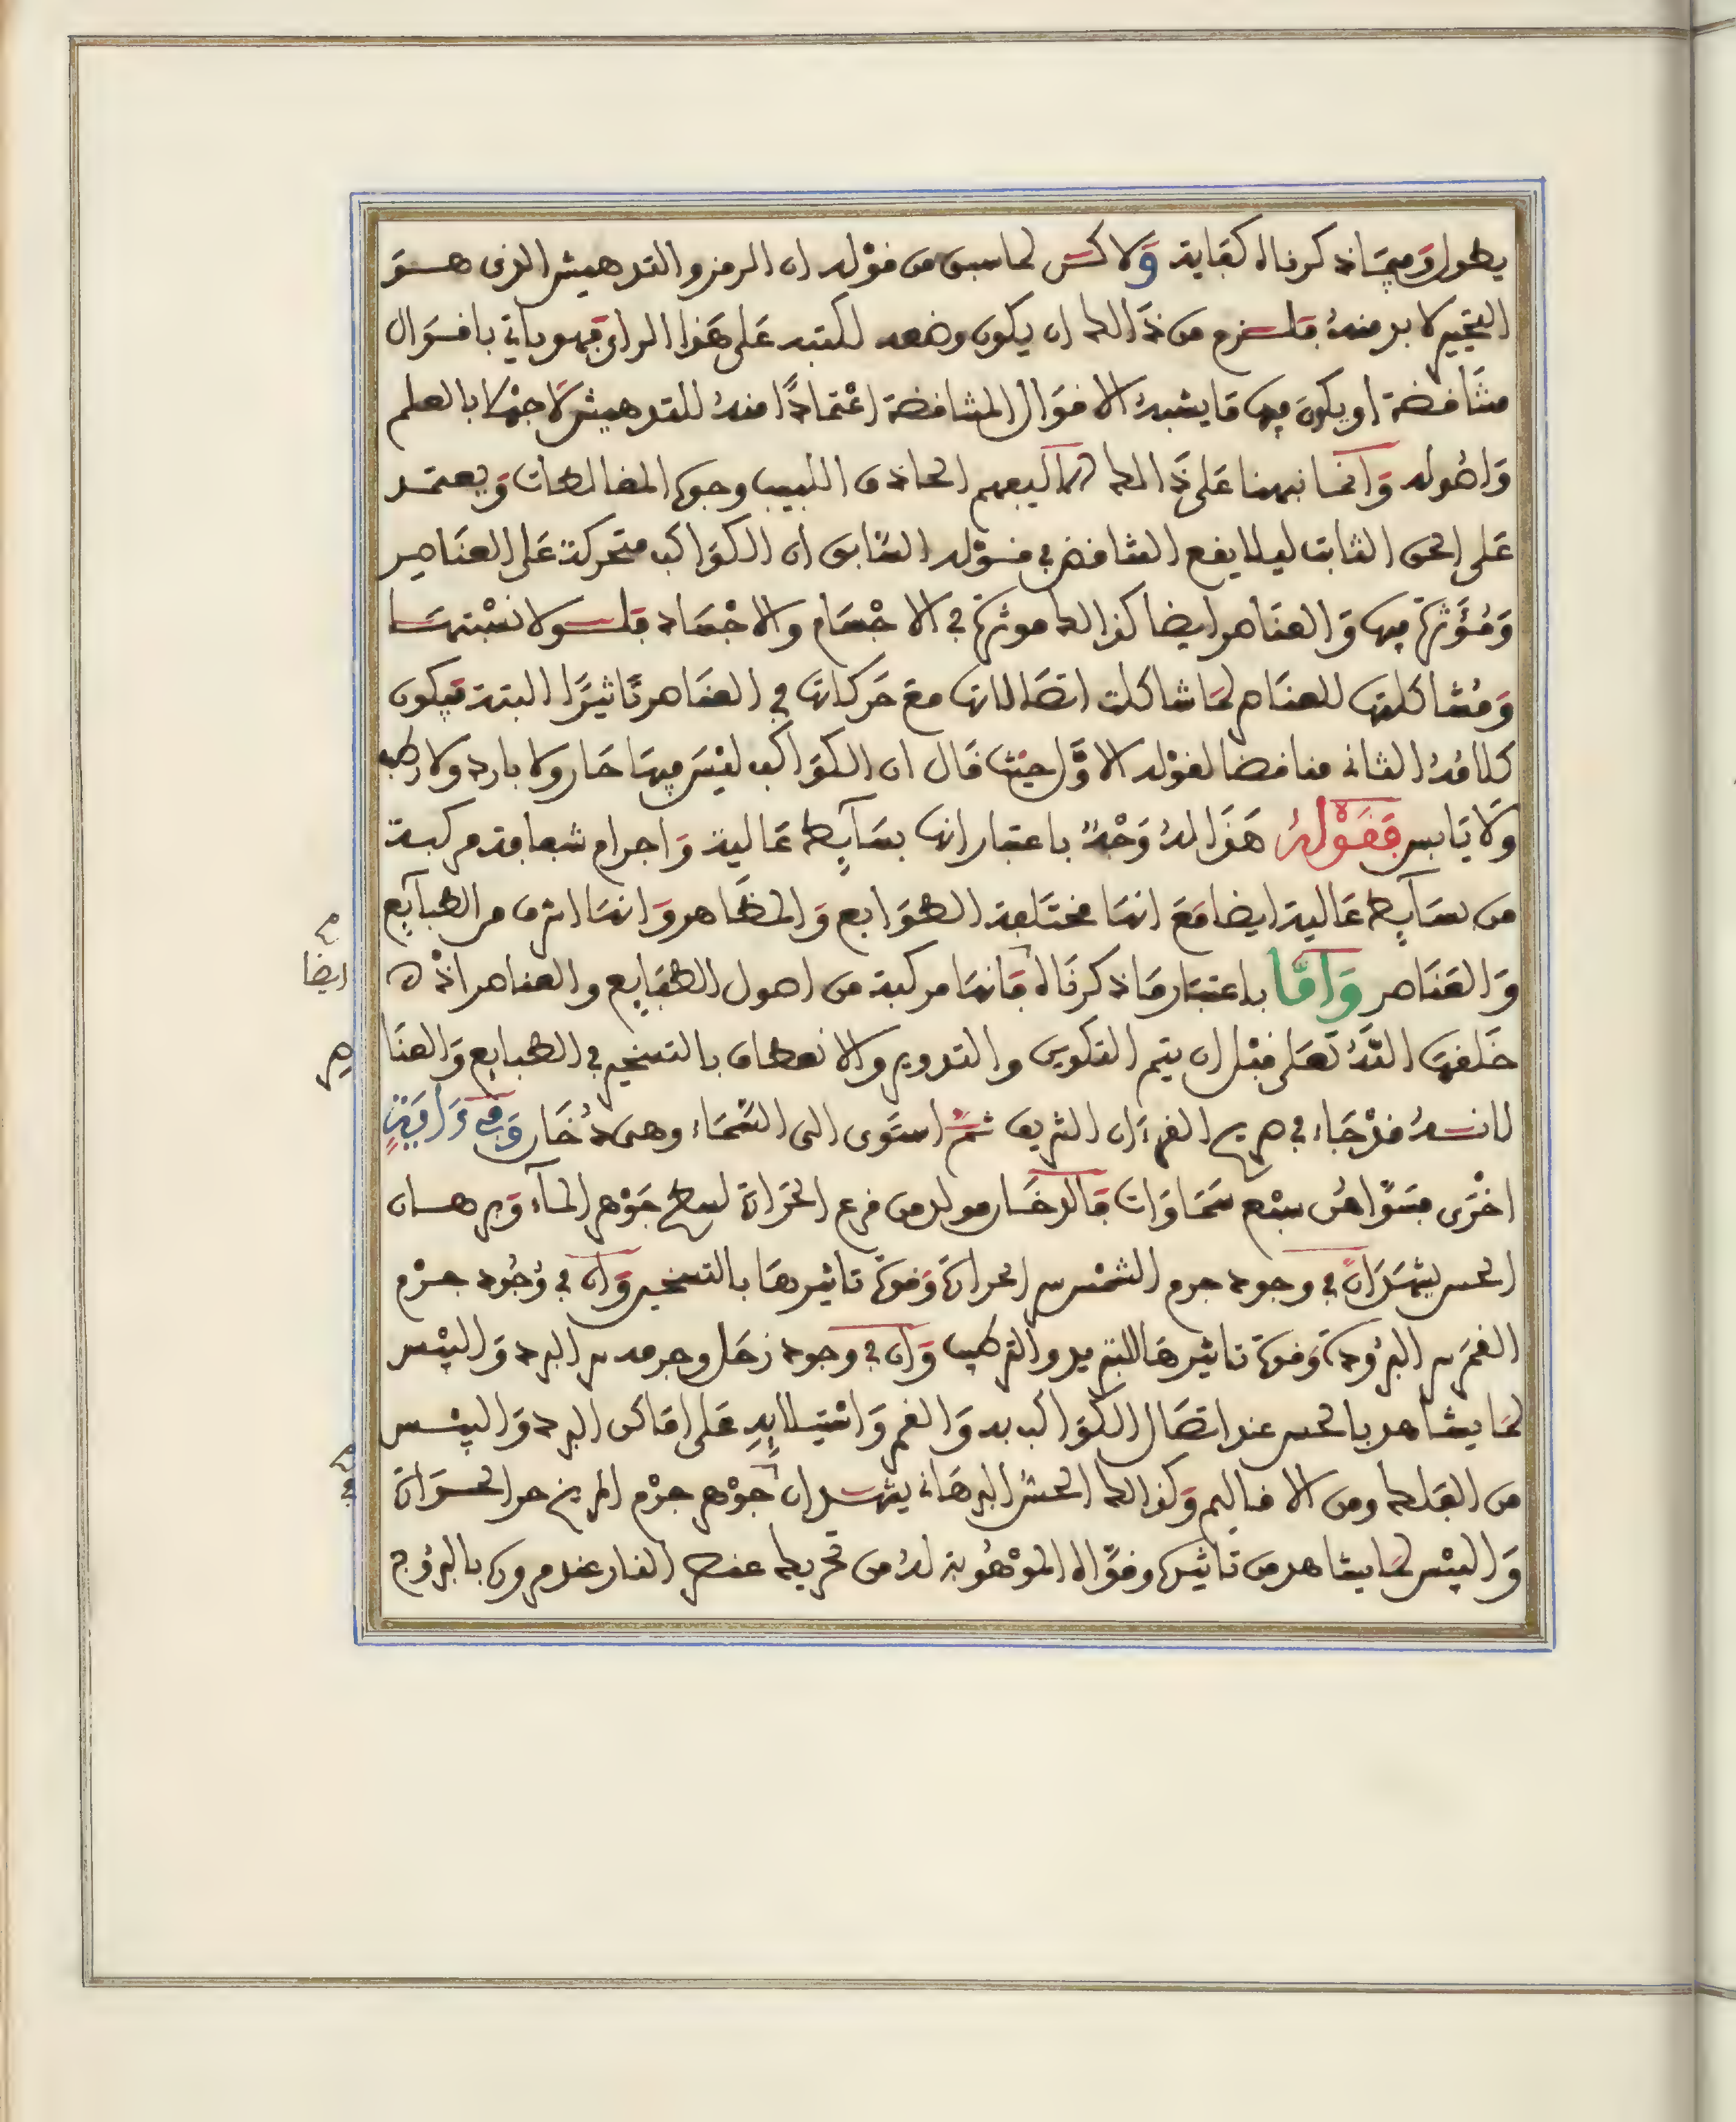 يطول وفيما ذكرناه كفاية ولاكن لما سبق من قوله ان الرمز والتدهيش الذى هو
التحيير لا بد منه فلزم من ذالك ان يكون وضعه لكتبه على هذا الراى فهو ياتي باقوال
متناقضة او يكون فيها ما يشبه الاقوال المتناقضة اعتمادًا منه للتدهيش لا جهلا بالعلم
واصوله وانما نبهنا على ذالك كله ليفهم الحاذق اللبيب وجوه المغالطات ويعتمد
على الحق الثابت ليلا يقع التناقض في قوله السابق ان الكواكب متحركة على العناصر
ومُؤَثرة فيها والعناصر ايضا كذالك موثرة في الاجسام والاجساد فلولا نسبتها
ومُشاكلتها للعناصر لما شاكلت اتصالاتها مع حركاتها في العناصر تاثيرًا البتة فيكون
كلامُهُ الثانى مناقضا لقوله الاوَّل حيث قال ان الكواكب ليْسَ فيها حار ولا بارد ولا رطب
ولا يابس فَقَوْلُهُ هَذا لهُ وَجْهٌ باعتبار انها بسآيط عالية واجرام شفافة مركبة
من بسآيط عالية ايضا مَعَ انها مختلفة الطوابع والمظاهر وانها اشرف من الطبآيع
والعناصر وَامَّا باعتبار ما ذكرناه فانها مركبة من اصول الطبايع والعناصر اذْ
ايضا
خلقها اللهُ تعلى قبل ان يتم التكوين والتدوير والانعطاف بالتسخير في الطبايع والعنا
صر
لانهُ قدْ جَاء في صريح القرءان الشريف ثمَّ استَوى الى السَّمَاء وهى دُخَان وَفِى ءَايَةٍ
اخْرَى فسَوَّاهُن سَبْع سَمَاوَات فالدخان مولد من فرع الحرَارة لسطح جَوْهر المآء وبرهان
الحس يشهَدُ انَّ في وجود جرم الشمْس سر الحرارة وقوة تاثيرها بالتسخير وان في وُجُود جرْم
القمَر سر البرُودة وقوة تاثيرها للتبريد والترطيب وَان في وجود زحَل وجرمه سر البرد واليبْس
لما يشاهد بالحس عند اتصَال الكوَاكب به والقمر واسْتيلايِهِ على اماكن البرد واليبْس
من الفلك ومن الاقاليم وكذالك الحسُّ البرهَانى يشهد ان جوْهر جرْم المريخ حر الحرَارة
في
واليبْس لما يشاهد من تاثيره وقوَّاه الموْهُوبة لهُ من تحريك عنصر النار عند مروره بالبرُوج